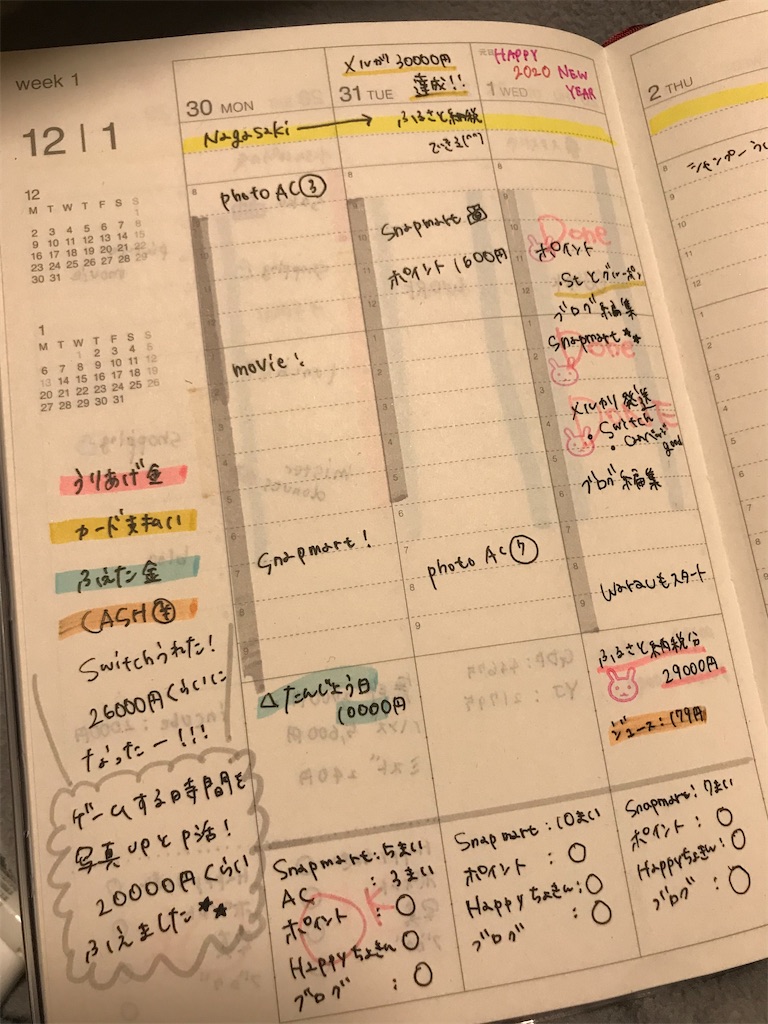 week 1
12 | 1
12
M T W T F S S
1
2 3 4 5 6 7 8
9 10 11 12 13 14 15
16 17 18 19 20 21 22
23 24 25 26 27 28 29
30 31
1
M T W T F S S
1 2 3 4 5
6 7 8 9 10 11 12
13 14 15 16 17 18 19
20 21 22 23 24 25 26
27 28 29 30 31
うりあげ金
カード支払い
ふえた金
CASH
Switchうれた!
26000円くらいに
なったー!!!
ゲームする時間を
写真upとp活!
20000円くらい
ふえました**
30 MON
Nagasaki →
photo AC③
movie!
Snapmart!
たんじょう日
10000円
Snapmart:5まい
AC:3まい
ポイント:○
Happyちょきん○
ブログ:○
OK
メルカリ30000円
達成!!
31 TUE
ふるさと納税
できる(^^)
Snapmart
ポイント1600円
photo AC⑦
Snapmart:10まい
ポイント:○
Happyちょきん:○
ブログ:○
元日
HAPPY
2020 NEW
YEAR
1 WED
Done
ポイント
ブログ編集
Snapmart**
Done
メルカリ発送
・Switch
ブログ編集
Warauもスタート
ふるさと納税分
29000円
ジュース:179円
Snapmart:7まい
ポイント:○
Happyちょきん:○
ブログ:○
2 THU